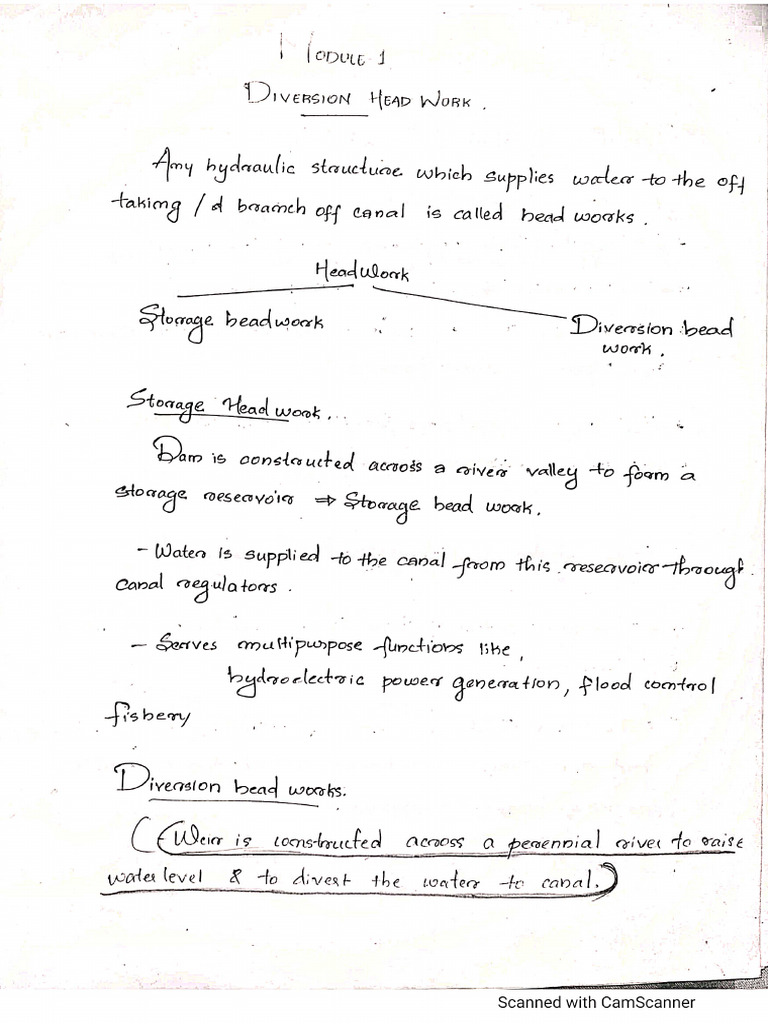 MODULE 1
DIVERSION HEAD WORK.
Any hydraulic structure which supplies water to the off
taking / d branch off canal is called head works.
Head Work
Storage headwork
Diversion head
work.
Storage Head work.
Dam is constructed across a river valley to form a
storage reservoir ⇒ Storage head work.
- Water is supplied to the canal from this reservoir through
canal regulators.
- Serves multipurpose functions like,
hydroelectric power generation, flood control
fishery
Diversion head works.
((Weir is constructed across a perennial river to raise
water level & to divert the water to canal.)
Scanned with CamScanner